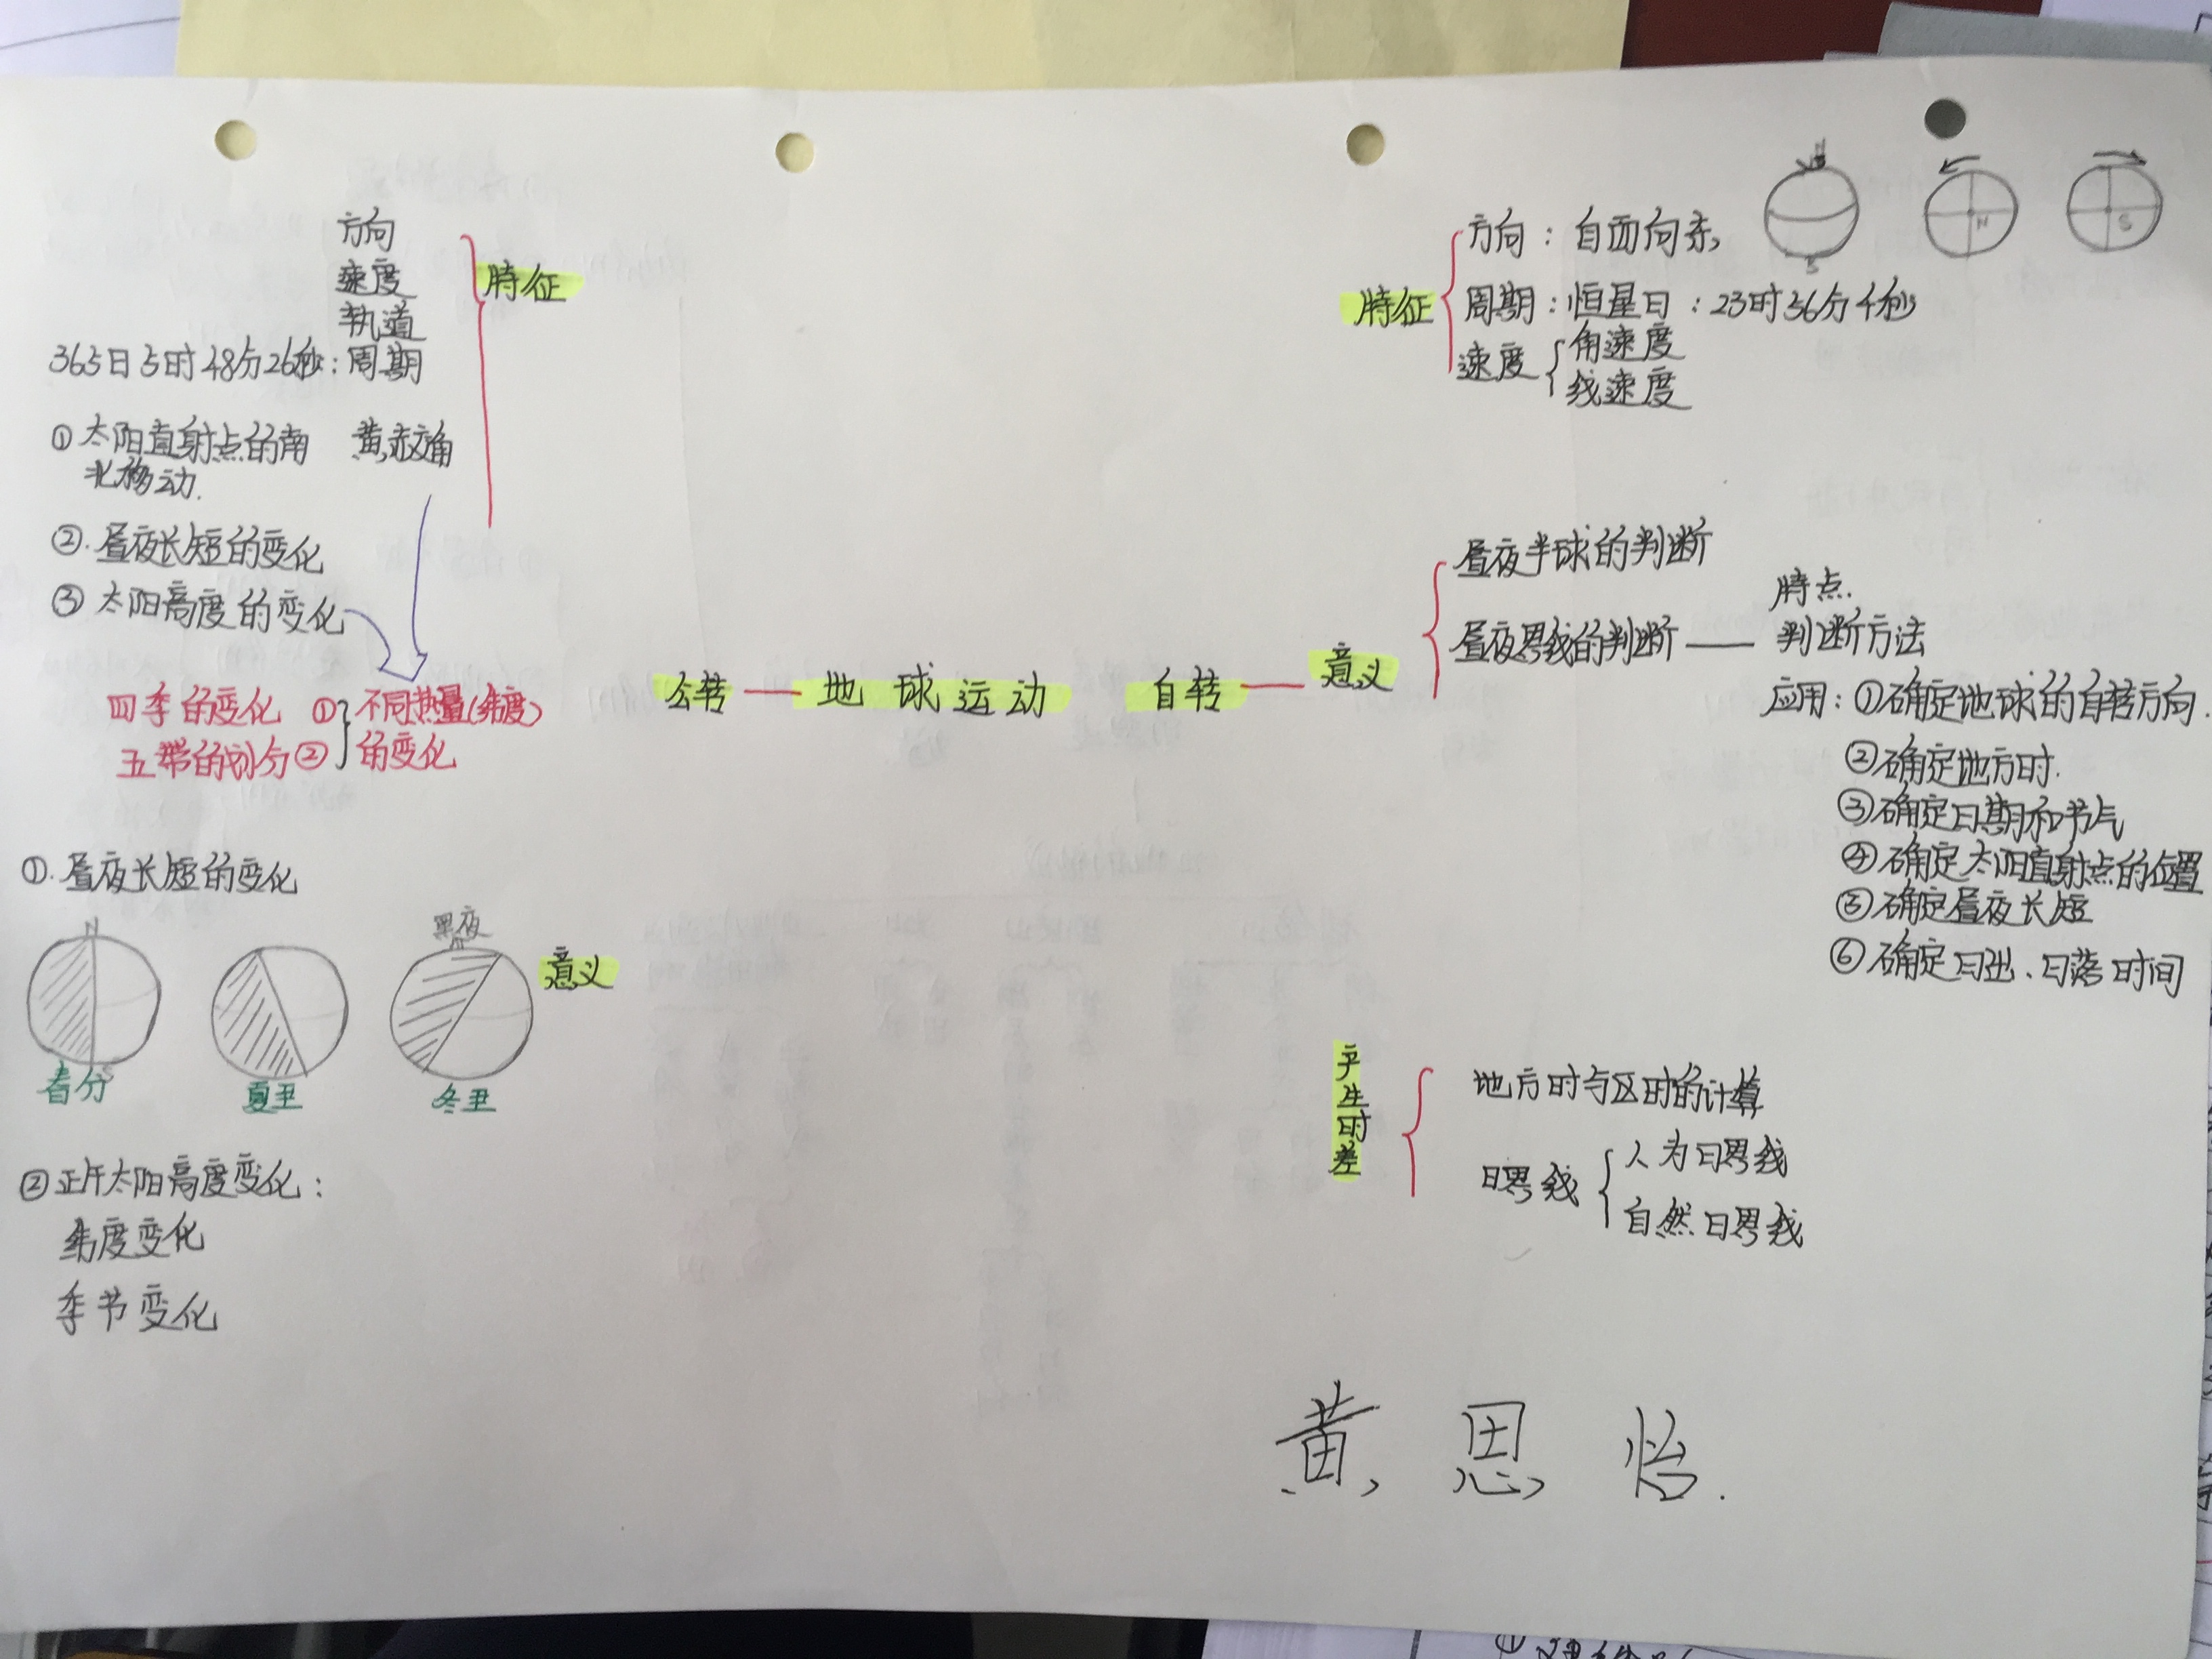 方向
速度
轨道
365日5时48分26秒：周期
特征
①太阳直射点的南
北移动.
黄赤交角
②.昼夜长短的变化
③太阳高度的变化
四季的变化 ①
五带的划分②
不同热量(纬度)
的变化
①.昼夜长短的变化
N
S
春分
夏至
黑夜
N
冬至
意义
②正午太阳高度变化：
纬度变化
季节变化
公转
地球运动
自转
特征
方向：自西向东
N
S
N
S
周期：恒星日：23时56分4秒
速度
角速度
线速度
意义
昼夜半球的判断
昼夜界线的判断
特点.
判断方法
应用：①确定地球的自转方向.
②确定地方时.
③确定日期和节气
④确定太阳直射点的位置
⑤确定昼夜长短
⑥确定日出、日落时间
产生时差
地方时与区时的计算
日界线
人为日界线
自然日界线
黄恩怡.